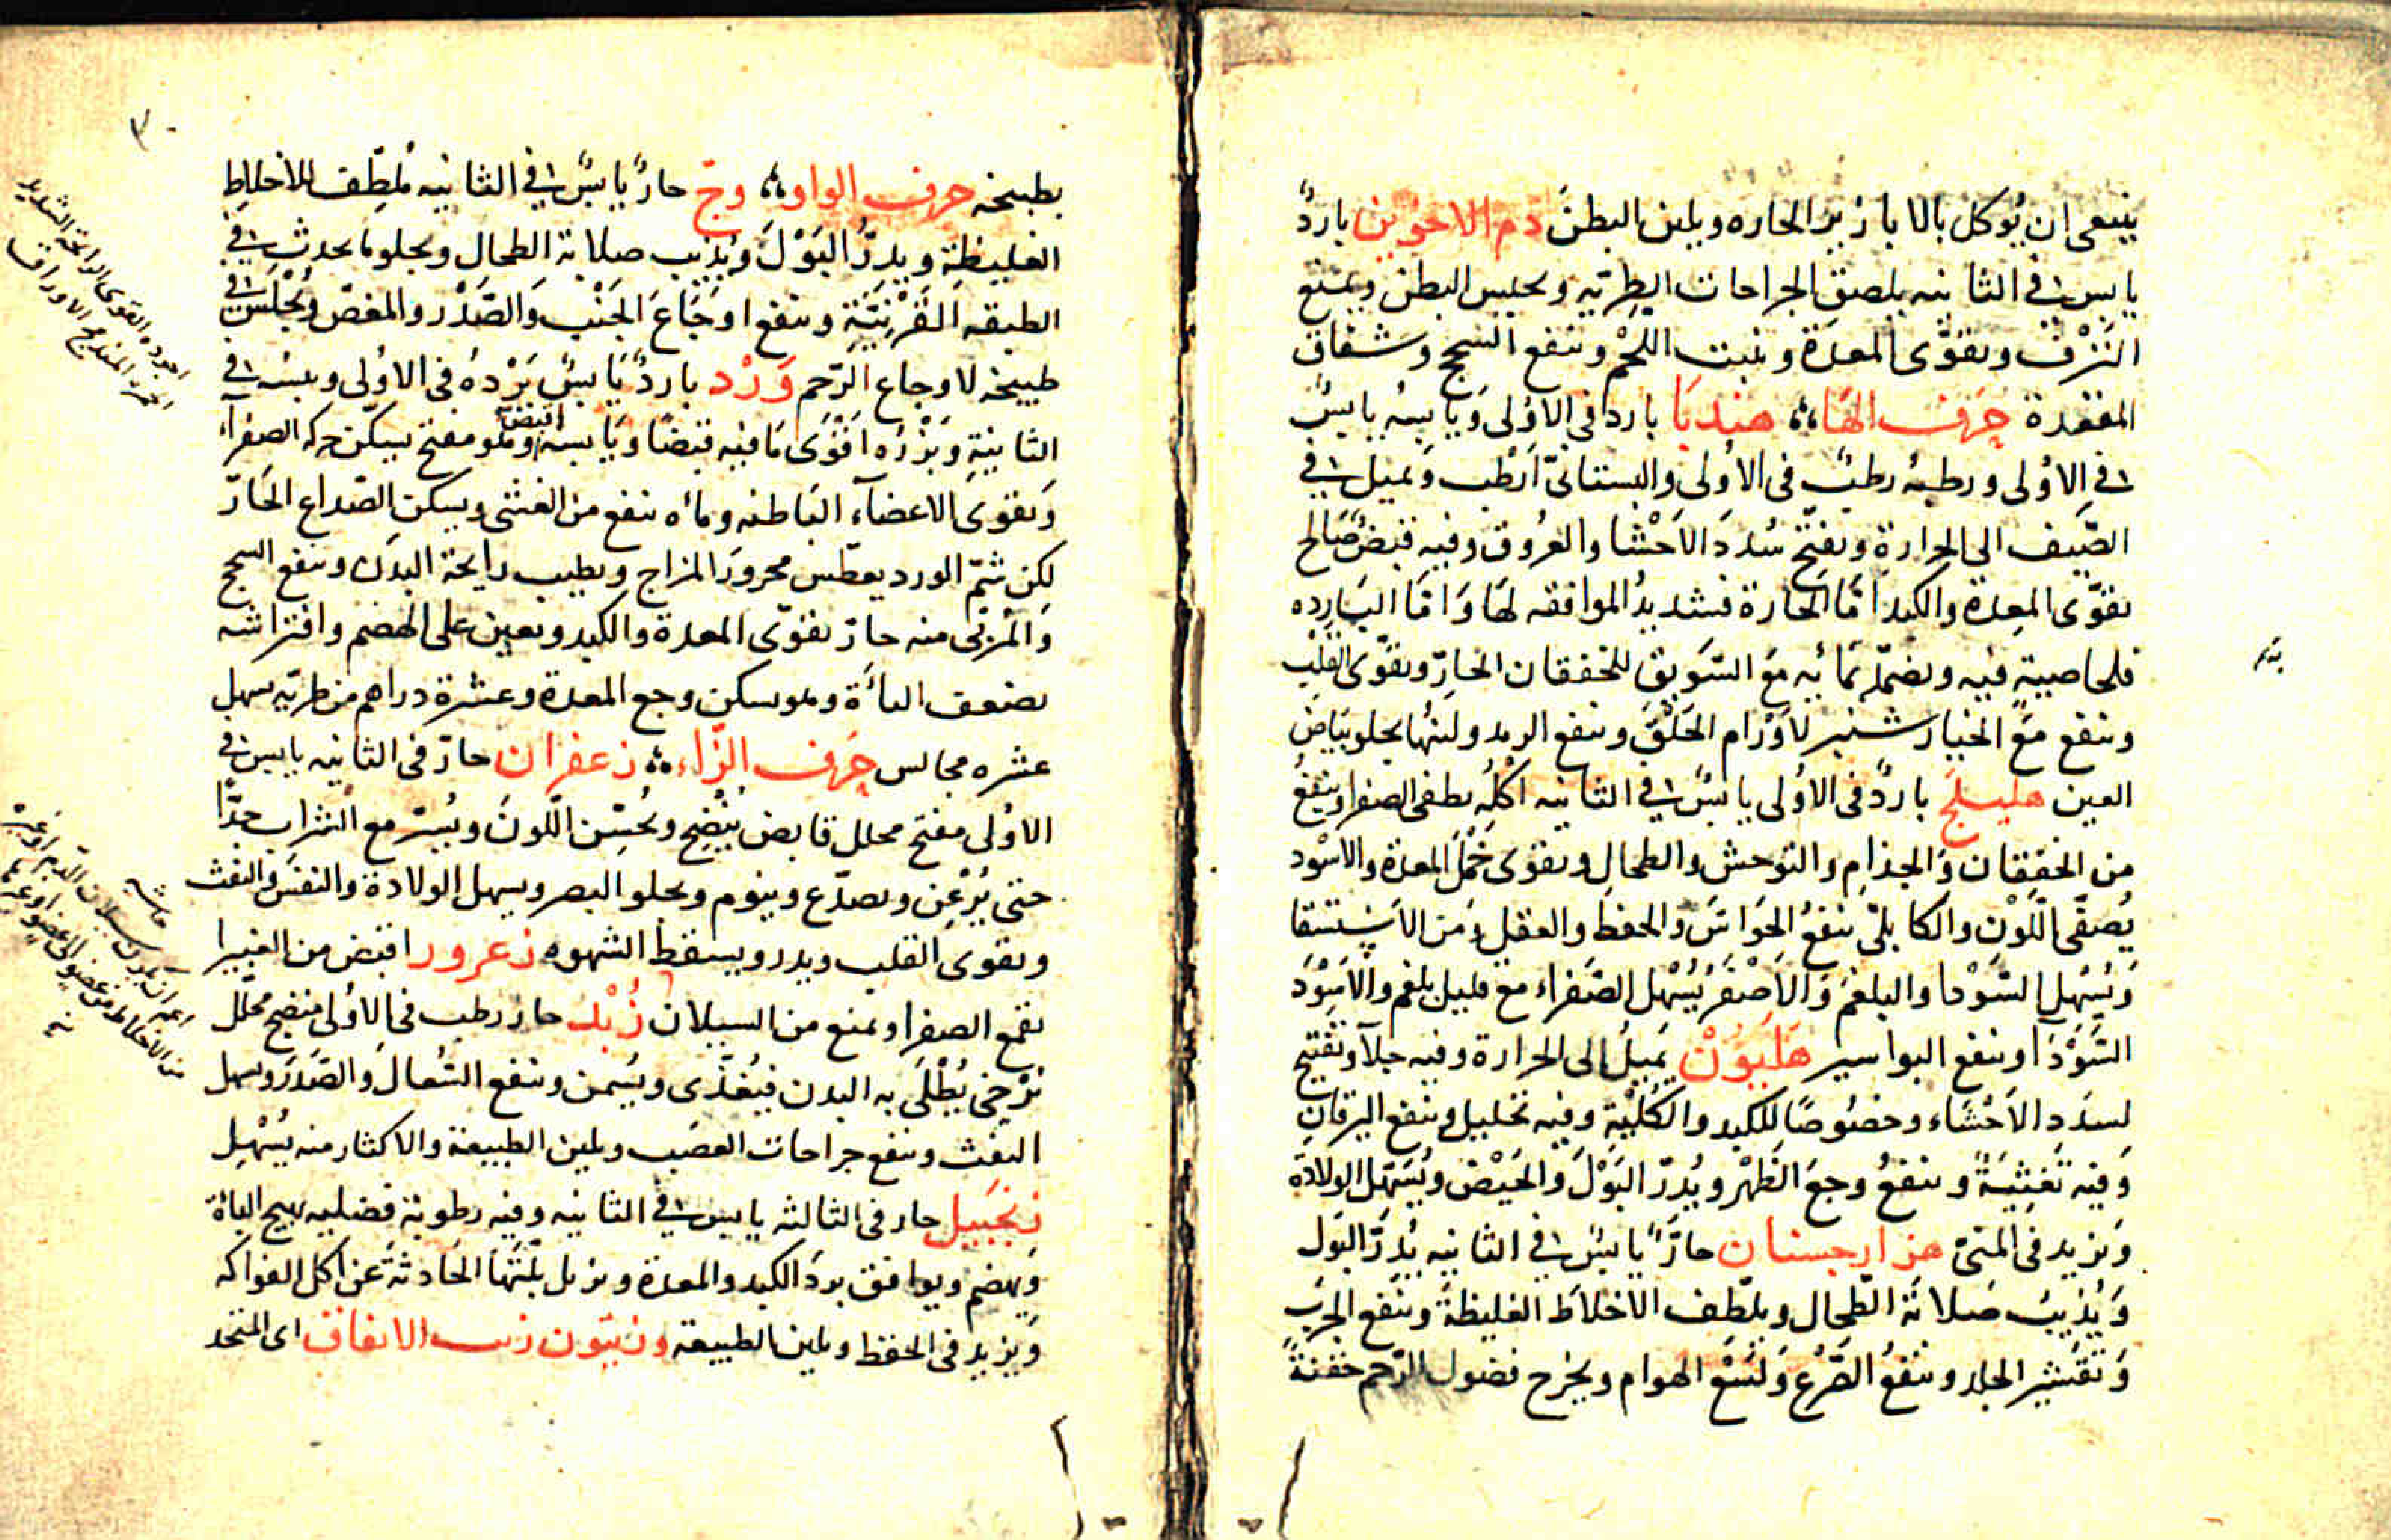 ينبغى ان يُوكل بالابازير الحاره ويلين البطن دم الاخوين باردٌ
يابسٌ فى الثانيه يلصق الجراحات الطريّه ويحبس البطن ويمنع
النزْف ويقوّى المعدة وينبت اللحم وينفع السحج وشقاق
المقعدة حَرف الهَا هندبَا بارد فى الاولى وَيابسهُ يابسٌ
فى الاولى ورطبهُ رطبٌ فى الاولى والبستانىّ ارطب وَيميل فى
الصّيف الى الحرارة ويفتح سُدَد الاحْشا والعُروق وفيه قبضٌ صَالح
يقوّى المعدة والكبد امّا الحَارة فشديدُ الموافقه لهَا وَامّا البَارده
فلخاصية فيه ويضمّد بمَائِه مَع السّويق للخفقان الحَارّ ويقوّى القَلب
وينفع مَع الخيار شنبر لاَوْرام الحَلق وينفع الرمد ولبنُها يجلو بيَاض
العين هليلج باردٌ فى الاولى يابسٌ فى الثانيه اكلُه يطفى الصفرا وينفعُ
من الخفقان وَالجذام والتوحش والطحال ويقوى خَمْل المعدة والاسْود
يُصفّى اللّوْن والكابلىّ ينفعُ الحَوَاسّ والحفظ والعقل وَمن الاستسقا
وَيُسْهل السّوْدا والبلغمَ وَالاَصْفَر يُسْهل الصّفراء مع قليل بلغم والاَسْوَد
السَّوْدَآ وينفع البواسير هَليُوْن يَميلُ الى الحرارة وفيه جلآ وتفتيح
لسدَد الاَحْشاء وخصُوصًا للكبد والكُلْيَة وفيه تحليل وينفع اليرقان
وَفيه تَغثِيَةٌ وينفعُ وجعَ الظّهْر ويُدرّ البَوْلَ وَالحَيْض ويُسَهّل الولادة
وَيزيد فى المنىّ هزارجسنان حارٌّ يابسٌ فى الثانيه يُدرّ البَول
وَيُذيبُ صَلابَة الطّحال ويلطّف الاخلاط الغليظةَ وينفع الجرَب
وَتقشير الجلد وينفعُ الصّرْع وَلسْع الهوام ويخرج فضول الرّحم حقنةً
بطبيخه حرف الواو وجّ حارٌّ يابسٌ فى الثانيه مُلطّف للاخلاط
الغليظة ويدرُّ البَوْلَ وَيُذيب صلابة الطحال ويجلو ما يحدث فى
الطبقه القَرْنيّة وينفع اوجَاعَ الجَنْب وَالصَّدْر والمغصّ ويُجْلَسُ فى
طبيخه لاوجاع الرّحم وَرْد باردٌ يَابسٌ بَرْدهُ فى الاولى ويبسُه فى
الثانيةِ وَبَزْرُه اقْوَى مَا فيه قبضًا ويَابسه اقبض وهو مفتح يسكّن حركه الصفرآء
وَيقوّى الاعضآء البَاطنه ومآه ينفع من الغشى ويسكن الصّداع الحَارّ
لكن شمّ الورد يعطّس محرورَ المزاج ويطيب رايحة البدن وينفع السحج
وَالمُربّى منه حارّ يقوّى المعدة والكبد ويعين على الهضم وافتراشه
يضعف الباَة وهو يسكن وجع المعدة وعشرة دراهم من طريّه يسهل
عشره مجالس حَرف الزّاء زعفران حارّ فى الثانيه يابس فى
الاولى مفتح محلل قابض يُنْضِج ويُحسِّن اللّونَ ويُسِرّ مع الشراب جدًّا
حتى يُرْعِن ويصدّع وينوم ويجلو البصر ويسهل الولادة والنفَس وَالنفث
ويقوى القلب ويدر ويسقط الشهوه زعرور اقبض من الغبيرا
يقمع الصفرا ويمنع من السيلان زُبْد حار رطب فى الاولى منضج محلّل
مُرْخى يُطْلَى به البدن فيُغذّى ويُسَمن وينفع السّعال وَالصّدَر ويسهل
النفث وينفع جراحات العصَب ويلين الطبيعة والاكثار منه يُسْهل
زنجبيل حار فى الثالثه يابس فى الثانيه وفيه رطوبة فضليه يهيج الباة
وَيهضم ويوافق بردَ الكبد والمعدة ويزيل بلّتهَا الحَادثةَ عَن اكل الفواكه
وَيزيد فى الحفظ ويلين الطبيعه وزيتون زيت الانفاق اى المتخذ
اجوده القوى الرائحة الشديد
الحمرة المندمج الاوراق